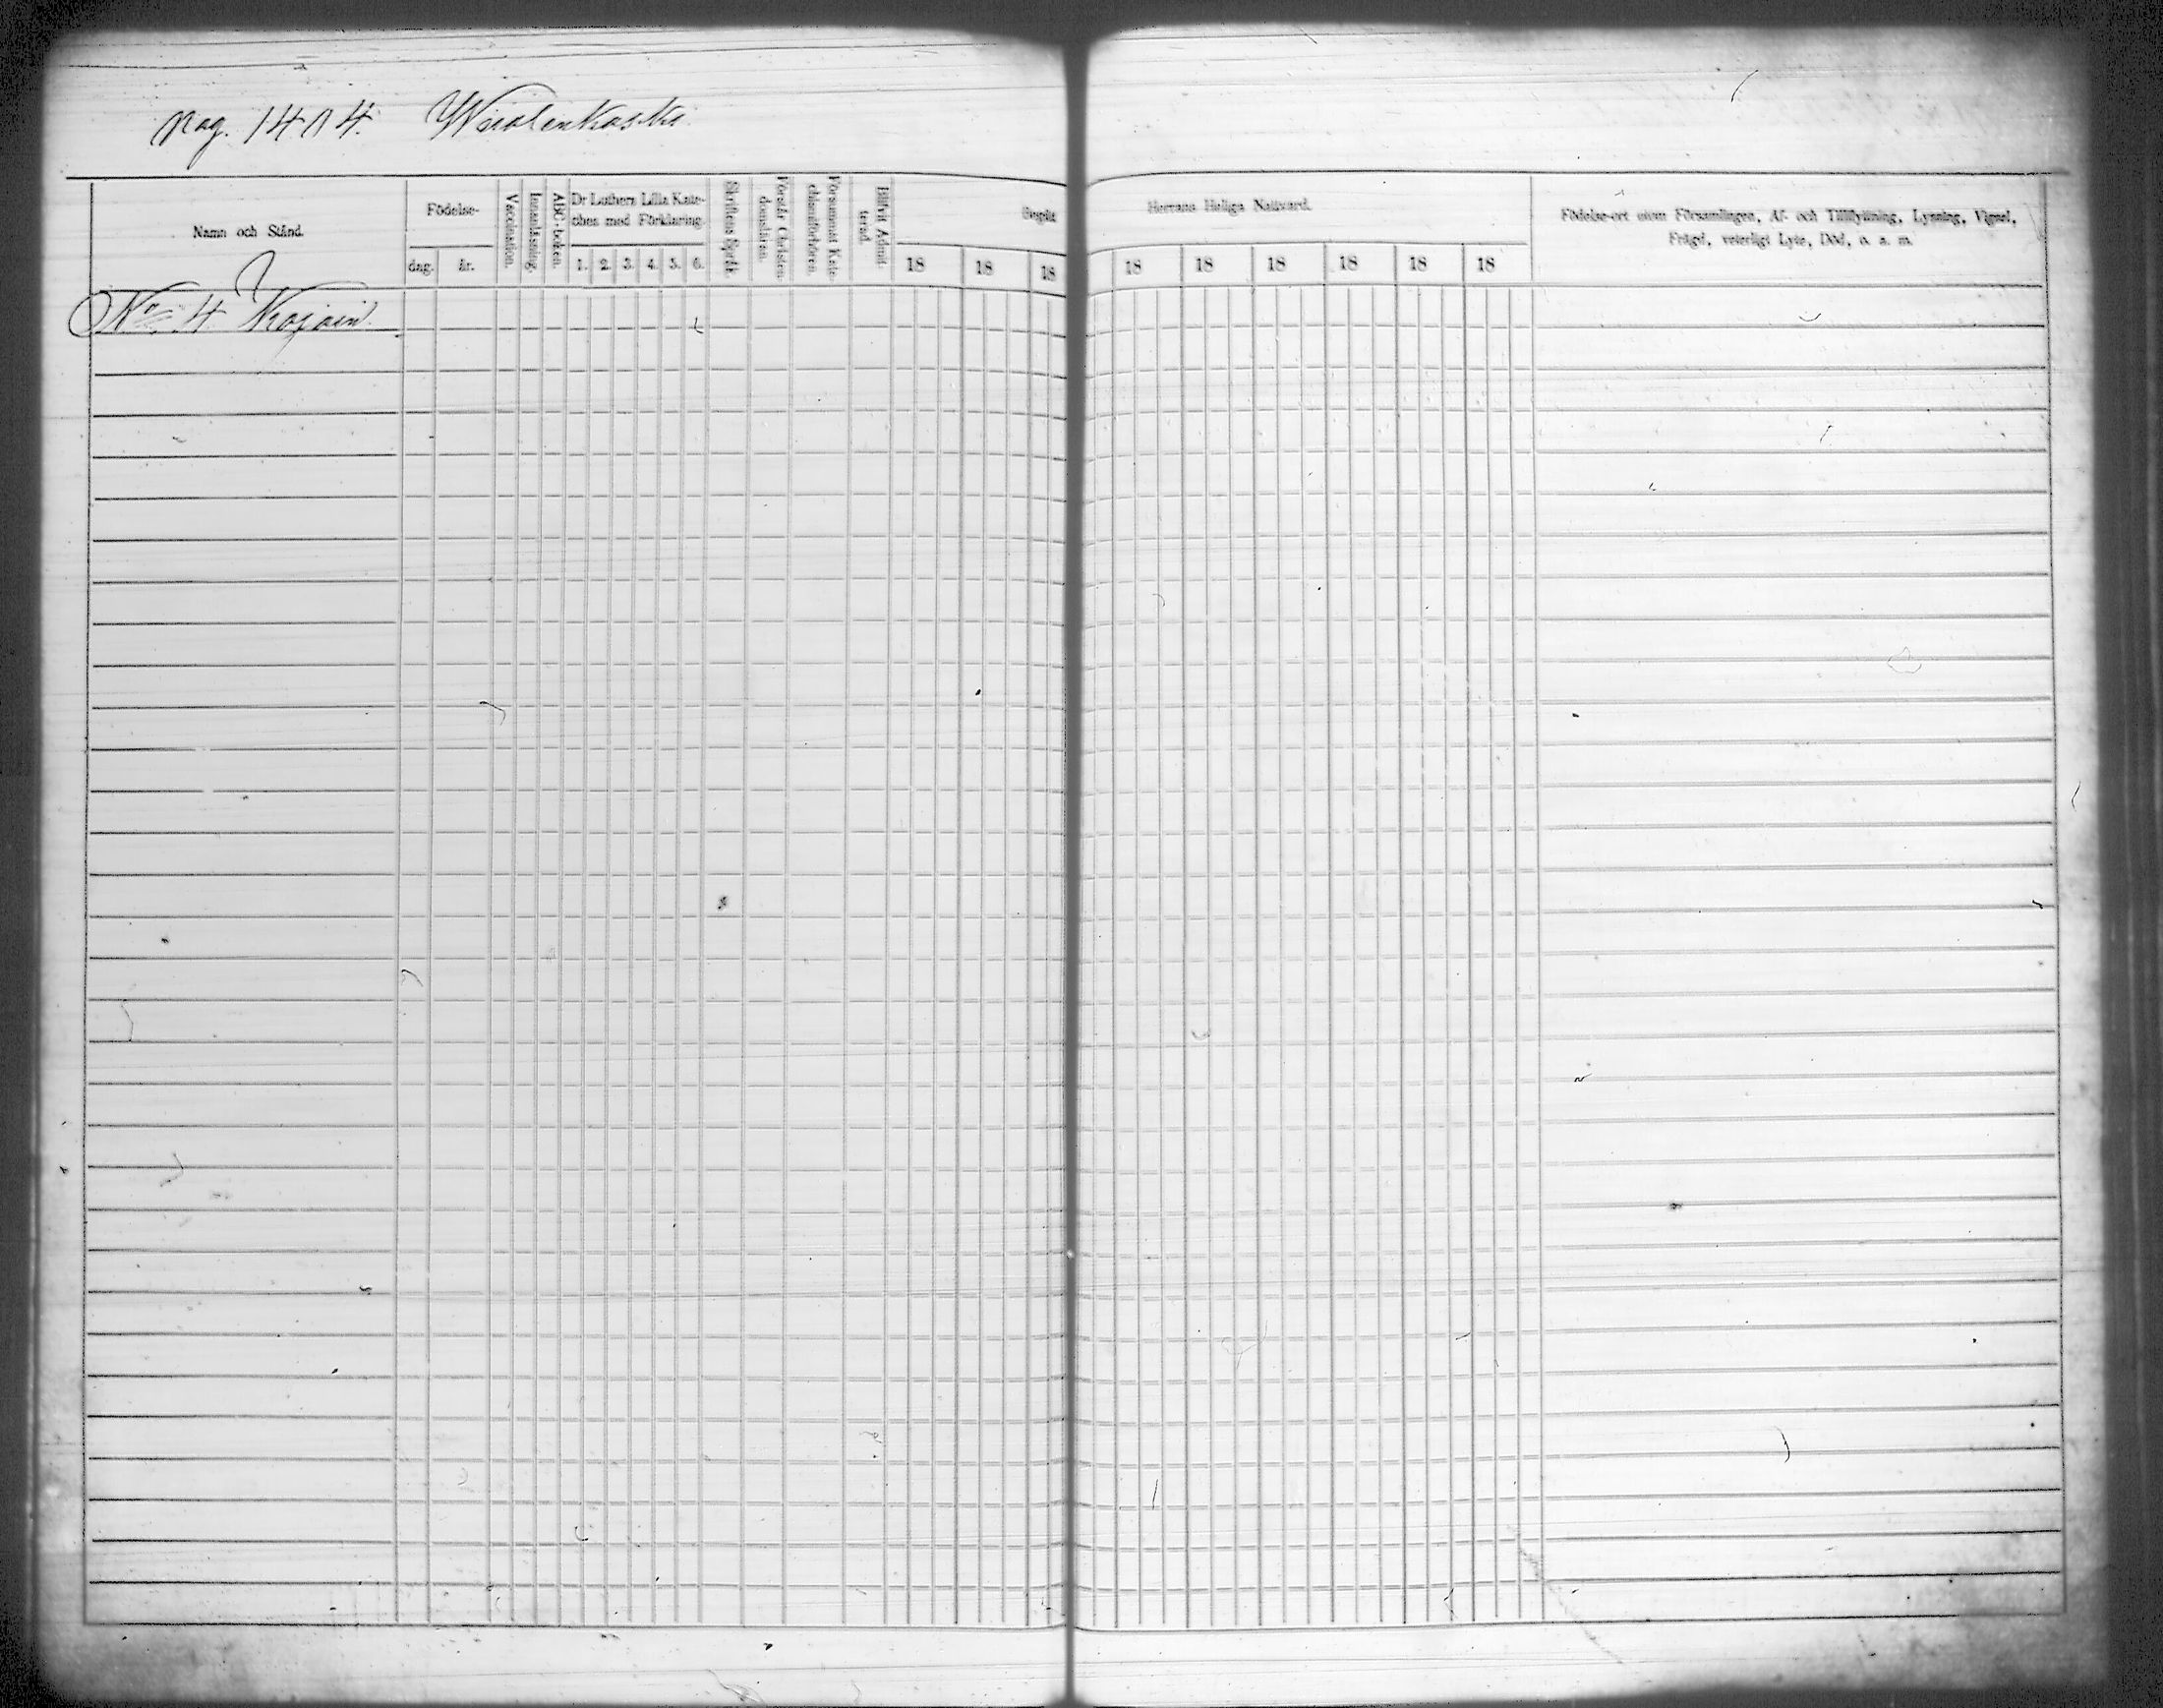 pag. 1414.
Namn och Stånd.
Födelse-
dag.
år.
Vaccination.
Innanläsning.
ABC-boken.
Dr Luthers Lilla Kate-
ches med Förklaring.
1. 2. 3. 4. 5. 6.
Skriftens Språk.
Förstår Christen-
domsläran.
Försummat Kate-
chismiförhören.
Blifvit Admit-
terad.
Begått
18 18 18
Herrans Heliga Nattvard.
18 18 18 18 18 18
Födelse-ort utom Församlingen, Af- och Tillflyttning, Lysning, Vigsel,
Frägd, veterligt Lyte, Död, o. a. m.
No 4